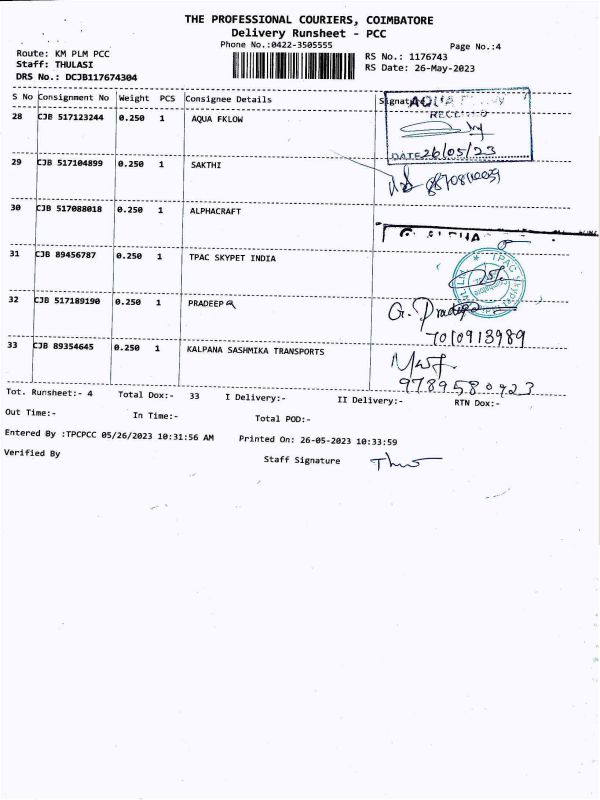 THE PROFESSIONAL COURIERS, COIMBATORE
Delivery Runsheet - PCC
Phone No.:0422-3505555
Page No.:4
Route: KM PLM PCC
Staff: THULASI
DRS No.: DCJB117674304
RS No.: 1176743
RS Date: 26-May-2023
S No Consignment No Weight PCS Consignee Details Signat
28 CJB 517123244 0.250 1 AQUA FKLOW
AQUA
RECEIVED
DATE 26/05/23
29 CJB 517104899 0.250 1 SAKTHI
30 CJB 517088018 0.250 1 ALPHACRAFT
31 CJB 89456787 0.250 1 TPAC SKYPET INDIA
TPAC
32 CJB 517189190 0.250 1 PRADEEP R
G. Pradeep
7010913989
33 CJB 89354645 0.250 1 KALPANA SASHMIKA TRANSPORTS
9789580923
Tot. Runsheet:- 4 Total Dox:- 33 I Delivery:- II Delivery:- RTN Dox:-
Out Time:- In Time:- Total POD:-
Entered By :TPCPCC 05/26/2023 10:31:56 AM Printed On: 26-05-2023 10:33:59
Verified By Staff Signature